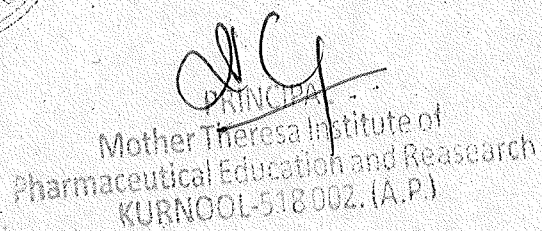 PRINCIPAL
Mother Theresa Institute of
Pharmaceutical Education and Reasearch
KURNOOL-518 002. (A.P.)